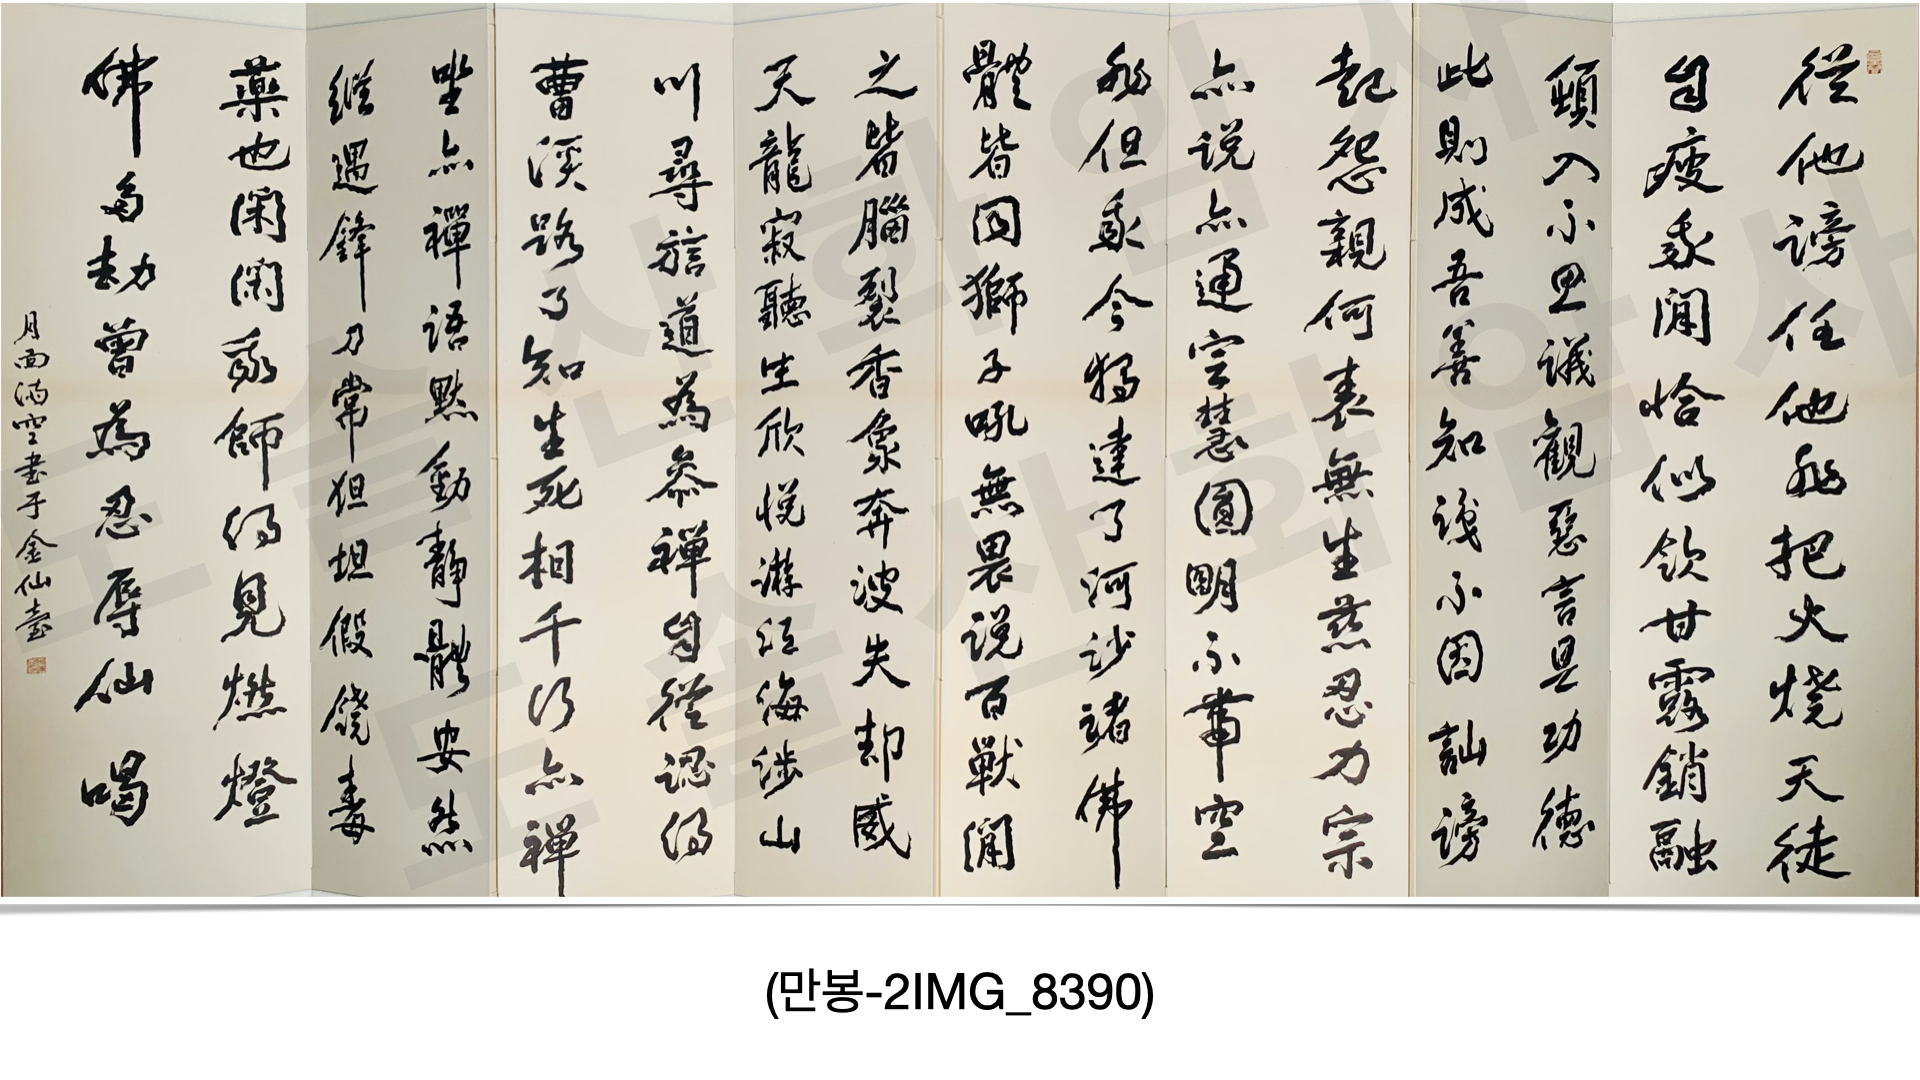 從他謗任他非把火燒天徒
自疲我聞恰似飮甘露銷融
頓入不思議觀惡言是功德
此則成吾善知識不因訕謗
起怨親何表無生慈忍力宗
亦說亦通定慧圓明不滯空
非但我今獨達了河沙諸佛
體皆同獅子吼無畏說百獸聞
之皆腦裂香象奔波失却威
天龍寂聽生欣悅遊江海涉山
川尋訪道為參禪自從認得
曹溪路了知生死相千行亦禪
坐亦禪語默動靜體安然
縱遇鋒刀常坦坦假饒毒
藥也閑閑我師得見燃燈
佛多劫曾為忍辱仙喝
月面滿空書于金仙臺
도솔산화암사
도솔산화암사
(만봉-2IMG_8390)